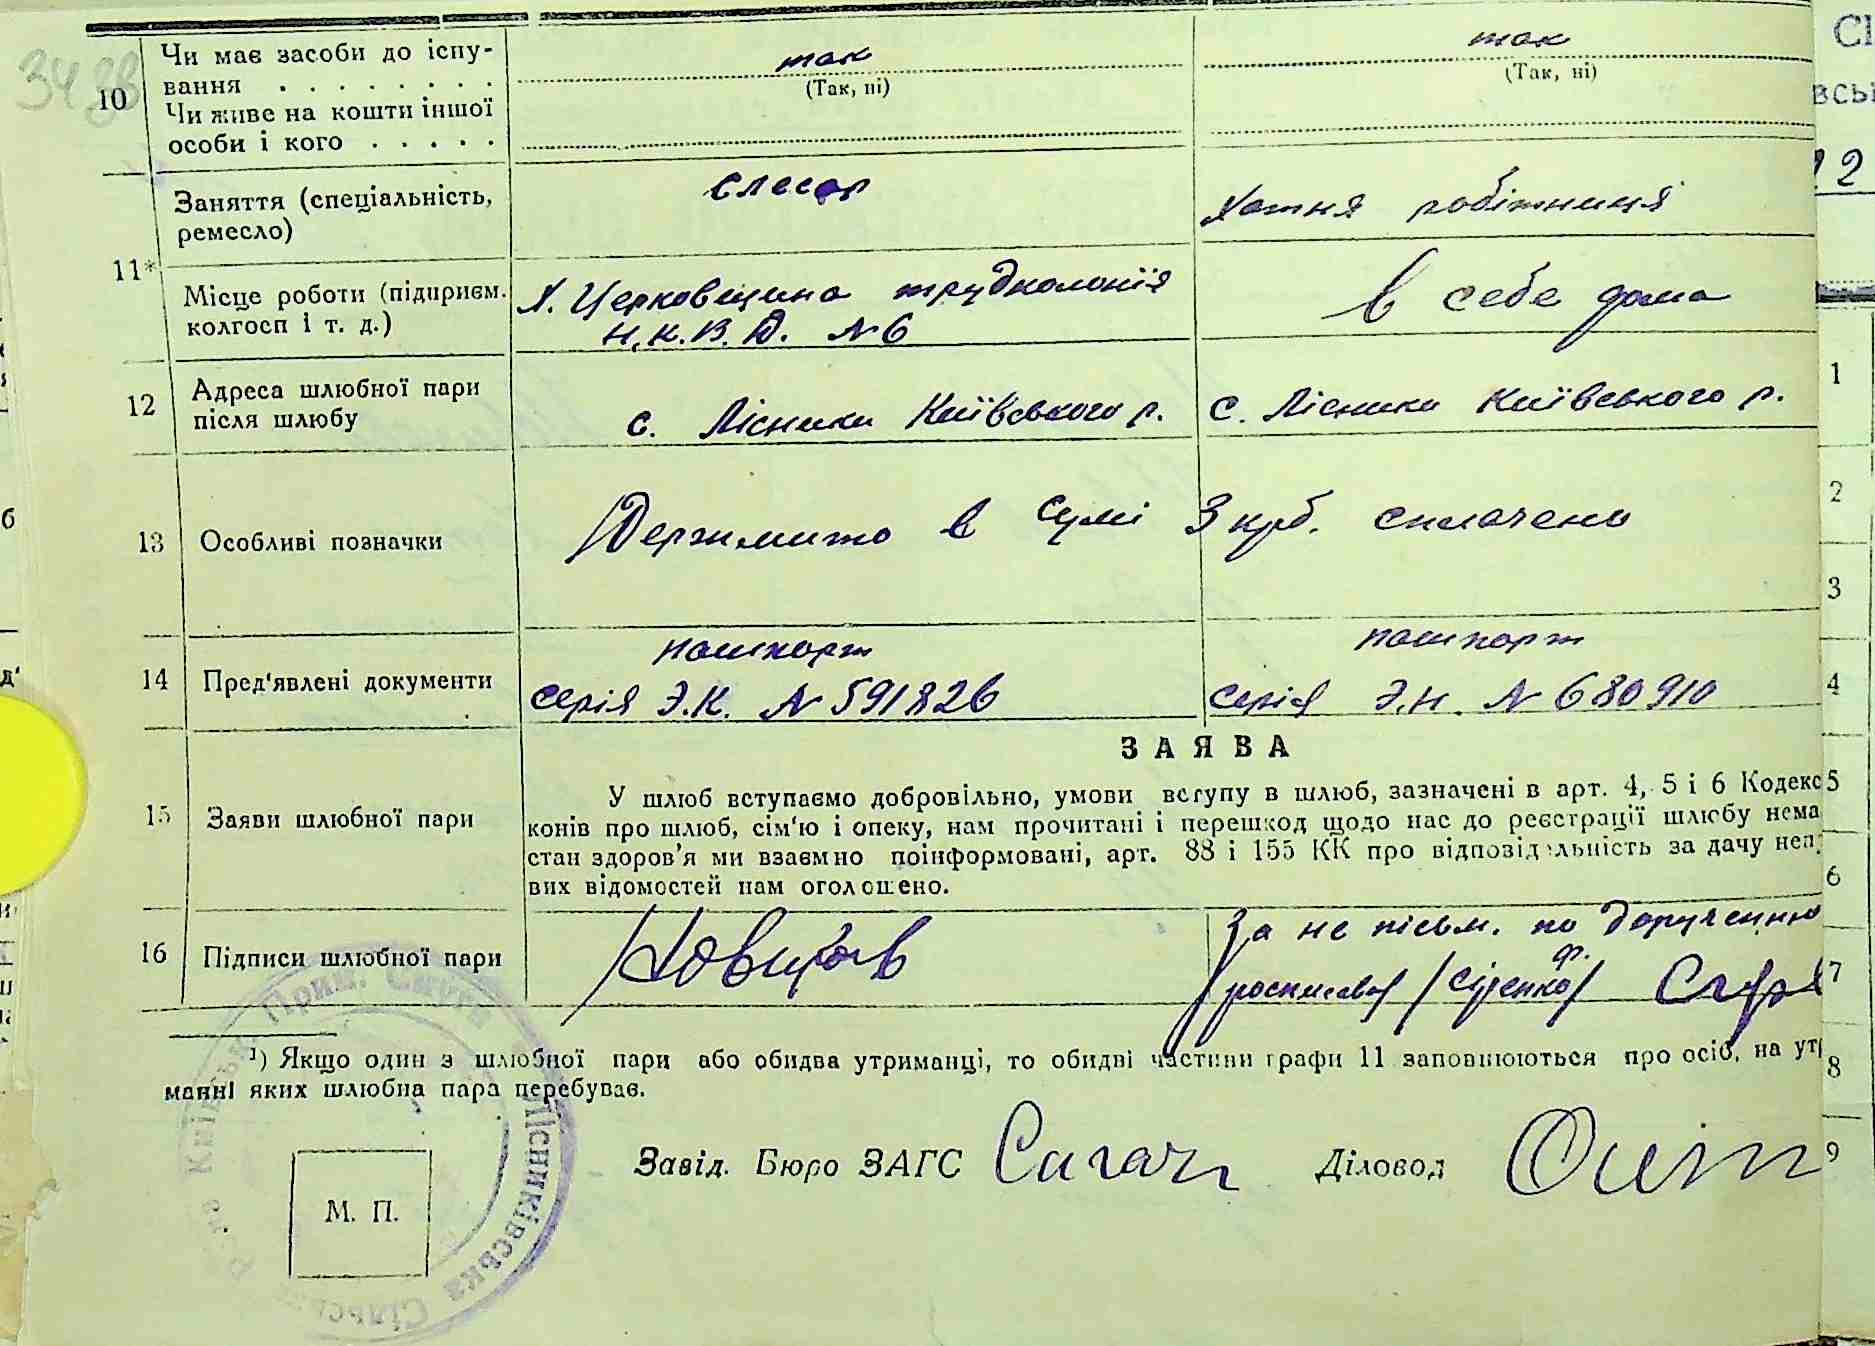 3488
10
Чи має засоби до існу-
вання . . . . . . . .
так
(Так, ні)
так
(Так, ні)
Чи живе на кошти іншої
особи і кого . . . . .
11*
Заняття (спеціальність,
ремесло)
слесар
Хатня робітниця
Місце роботи (підприєм.
колгосп і т. д.)
Х. Церковщина трудколонія
Н.К.В.Д. № 6
в себе дома
12
Адреса шлюбної пари
після шлюбу
с. Лісники Київського р.
с. Лісники Київського р.
13
Особливі позначки
Держмито в сумі 3 крб. сплачено
14
Пред'явлені документи
пашпорт
серія Э.К. № 591826
пашпорт
серія Э.Н. № 680910
15
Заяви шлюбної пари
ЗАЯВА
У шлюб вступаємо добровільно, умови вступу в шлюб, зазначені в арт. 4, 5 і 6 Кодекс
конів про шлюб, сім'ю і опеку, нам прочитані і перешкод щодо нас до реєстрації шлюбу нема
стан здоров'я ми взаємно поінформовані, арт. 88 і 155 КК про відповідальність за дачу неп
вих відомостей нам оголошено.
16
Підписи шлюбної пари
За не письм. по дорученню
росписався /Сіренко ф./
¹) Якщо один з шлюбної пари або обидва утриманці, то обидві частини графи 11 заповнюються про осіб, на ут
манні яких шлюбна пара перебуває.
М. П.
Завід. Бюро ЗАГС Сагач Діловод
Лісниківська Сільсь
Київськ. Прим. Смуги
Сі
всь
12
1
2
3
4
5
6
7
8
9